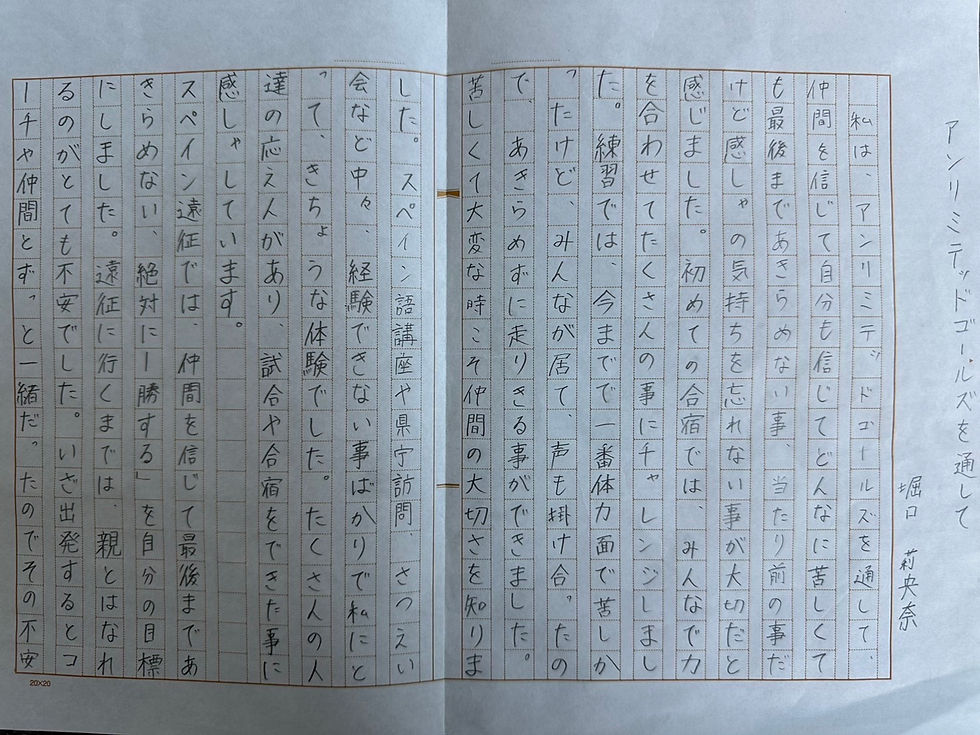 アンリミテッドゴールズを通して
堀口 莉央奈
私は、アンリミテッドゴールズを通して、
仲間を信じて自分も信じてどんなに苦しくて
も最後まであきらめない事、当たり前の事だ
けど感しゃの気持ちを忘れない事が大切だと
感じました。初めての合宿では、みんなで力
を合わせてたくさんの事にチャレンジしまし
た。練習では、今までで一番体力面で苦しか
ったけど、みんなが居て、声も掛け合ったの
で、あきらめずに走りきる事ができました。
苦しくて大変な時こそ仲間の大切さを知りま
した。スペイン語講座や県庁訪問、さつえい
会など中々、経験できない事ばかりで私にと
って、きちょうな体験でした。たくさんの人
達の応え人があり、試合や合宿をできた事に
感しゃしています。
スペイン遠征では、仲間を信じて最後まであ
きらめない、絶対に一勝する」を自分の目標
にしました。遠征に行くまでは、親とはなれ
るのがとても不安でした。いざ出発するとコ
ーチや仲間とずっと一緒だったのでその不安
20×20